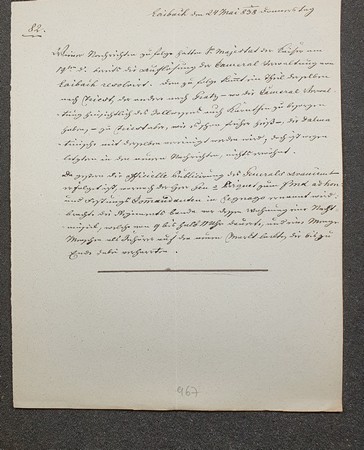 Laibach den 24 Mai 838 Donnerstag
82.
Wiener Nachrichten zu folge hatten Sr Majestät der Kaiser am
19ten d. bereits die Auflösung der Cameral Verwaltung von
Laibach resolvirt. Dem zu folge kömt ein Theil derselben
nach Triest, der andere nach Gratz – wo die Cameral Verwal-
tung hinsichtlich des auch Kärnthen zu besorgen
haben, – zu Triest aber, wie es schon früher hieß, die Dalma-
tinische mit derselben vereinigt werden wird, doch ist wegen
letztern in den neuen Nachrichten, nichts erwähnt.
Da gestern die officielle Publicirung des Generals Avancement
erfolgt ist, wornach der Herr zum
und Festungs Comandanten in Legnago ernannt wird,
brachte die Regiments bande vor dessen Wohnung eine Nacht-
musik, welche von 9 bis halb 11 Uhr dauerte, und eine Menge
Menschen als Zuhörer auf den neuen Markt lockte, die bis zu
Ende dabei verharrten.
967